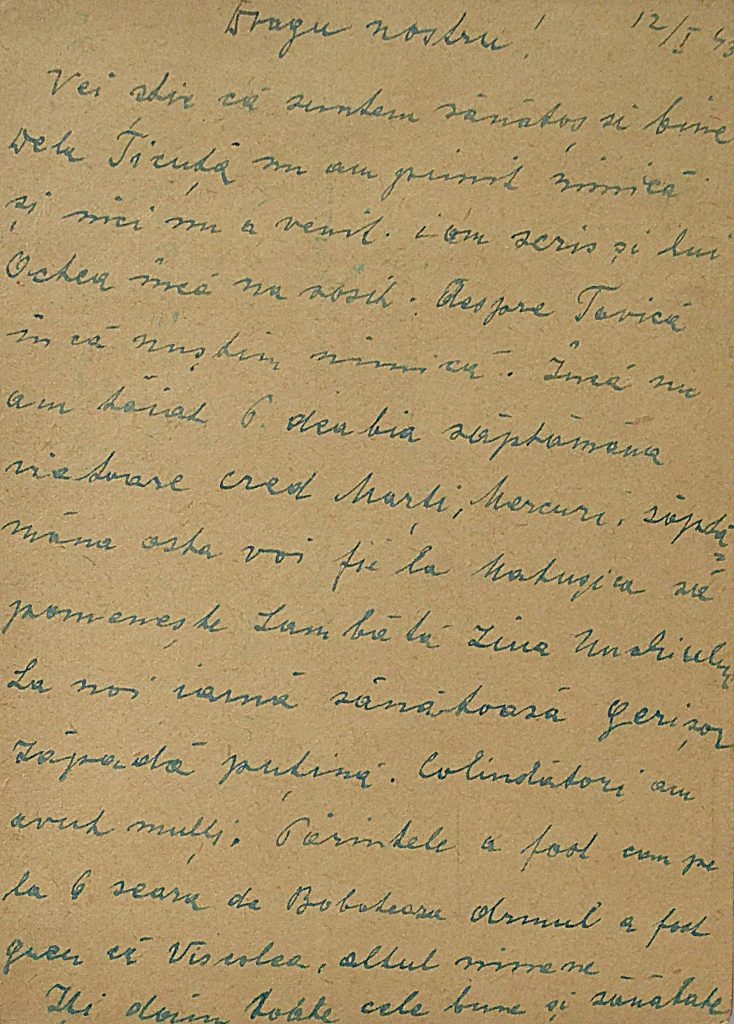 Dragu nostru! 12/I 43
Vei stie că suntem sănătoș si bine
Dela Ticuță nu am primit nimică
și nici nu a venit. iam scris și lui
Octea încă na sosit. despre Tavică
încă nuștim nimică. Încă nu
am tăiat P. deabia săptămâna
viatoare cred Marți, Mercuri, săptă=
mâna asta voi fie la Matușica să
pomenește Sambătă Ziua Unchiului
La noi iarnă sănătoasă gerișor
Zăpadă puțină. Colindători am
avut mulți. Părintele a fost cam pe
la 6 seara de Boboteaza drmul a fost
greu că Viscolea, altul nimene
Iți dăim toate cele bune și sănătate